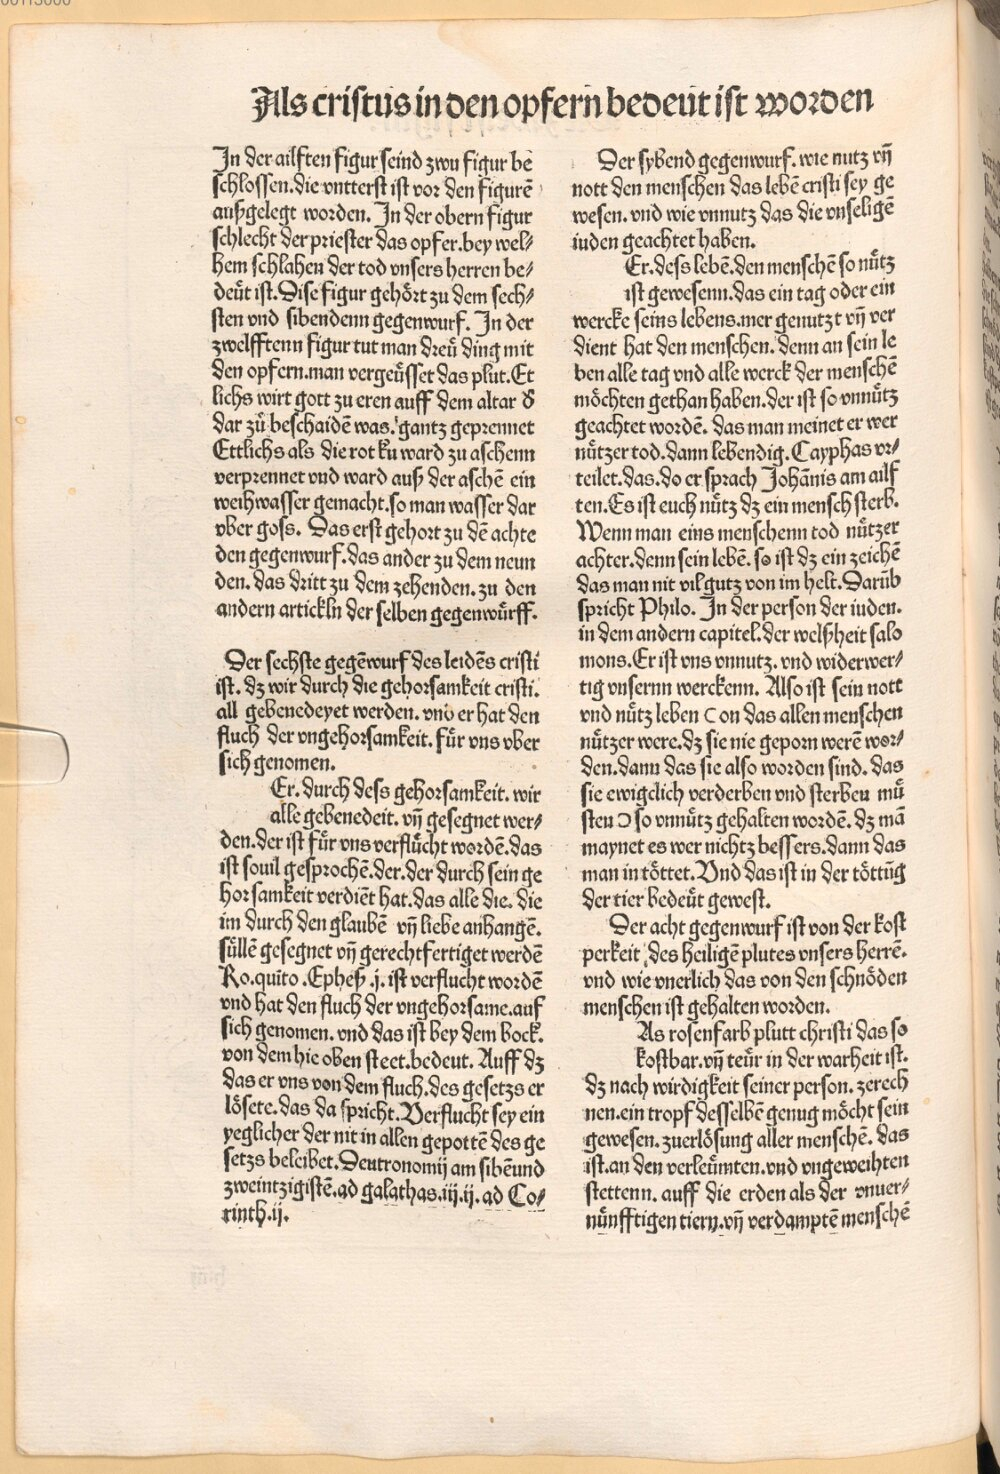 Als cristus in den opfern bedeüt ist worden
In der ailften figur seind zwu figur be
schlossen.die vntterst ist vor den figurē
außgelegt worden. In der obern figur
schlecht der priester das opfer.bey wel⸗
hem schlahen der tod vnsers herren be⸗
deüt ist.Dise figur gehört zu dem sech⸗
sten vnd sibendenn gegenwurf. In der
zwelfftenn figur tut man dreü ding mit
den opfern.man vergeüsset das plut.Et
lichs wirt gott zu eren auff dem altar d̕
dar zů beschaidē was. gantz geprennet
Ettlichs als die rot ku ward zu aschenn
verprennet vnd ward auß der aschē ein
weihwasser gemacht.so man wasser dar
vber goss. Das erst gehort zu dē achte
den gegenwurf.das ander zu dem neun
den. das dritt zu dem zehenden. zu den
andern artickln der selben gegenwürff.
Der sechste gegēwurf des leidēs cristi
ist. dz wir durch die gehorsamkeit cristi.
all gebenedeyet werden. vnd er hat den
fluch der vngehorsamkeit. für vns vber
sich genomen.
Er. durch dess gehorsamkeit. wir
alle gebenedeit. vn̄ gesegnet wer⸗
den.der ist für vns verflücht wordē.das
ist souil gesprochē.der.der durch sein ge
horsamkeit verdiēt hat.das alle die. die
im durch den glaubē vn̄ liebe anhangē.
süllē gesegnet vn̄ gerechtfertiget werdē
Ro.quito .Epheß .j. ist verflucht wordē
vnd hat den fluch der vngehorsame.auf
sich genomen. vnd das ist bey dem bock.
von dem hie oben steet.bedeut. Auff dz
das er vns von dem fluch.des gesetzs er
lösete.das da spricht.Verflucht sey ein
yeglicher der nit in allen gepottē des ge
setzs beleibet.Deutronomij am sibēund
zweintzigistē.ad galathas.iij.ij. ad Co⸗
rinth.ij.
Der sybend gegenwurf. wie nutz vn̄
nott den menschen das lebē cristi sey ge
wesen. vnd wie vnnutz das die vnseligē
iuden geachtet haben.
Er. dess lebē.den menschē so nütz
ist gewesenn.das ein tag oder ein
wercke seins lebens.mer genutzt vn̄ ver
dient hat den menschen. denn an sein le
ben alle tag vnd alle werck der menschē
möchten gethan haben.der ist so vnnütz
geachtet wordē. das man meinet er wer
nützer tod. dann lebendig. Cayphas vr⸗
teilet.das.do er sprach Johānis am ailf
ten.Es ist euch nütz dz ein mensch sterb.
Wenn man eins menschenn tod nützer
achtet.denn sein lebē. so ist dz ein zeichē
das man nit vil gutz von im helt.Darüb
spricht Philo. In der person der iuden.
in dem andern capitel.der weißheit salo
mons.Er ist vns vnnutz. vnd widerwer⸗
tig vnsernn werckenn. Also ist sein nott
vnd nütz leben (on das allen menschen
nützer were.dz sie nie geporn werē wor⸗
den.dann das sie also worden sind. das
sie ewigclich verderben vnd sterben mü
sten) so vnnütz gehalten wordē. dz mā
maynet es wer nichtz bessers.dann das
man in töttet.Vnd das ist in der töttūg
der tier bedeüt gewest.
Der acht gegenwurf ist von der kost
perkeit des heiligē plutes vnsers herrē.
vnd wie vnerlich das von den schnöden
menschen ist gehalten worden.
As rosenfarb plutt christi das so
kostbar.vn̄ teür in der warheit ist.
dz nach wirdigkeit seiner person. zerech
nen.ein tropf desselbē genug möcht sein
gewesen. zuerlösung aller menschē. das
ist.an den verleümten.vnd vngeweihten
stettenn. auff die erden als der vnuer⸗
nünfftigen tiern.vn̄ verdamptē menschē